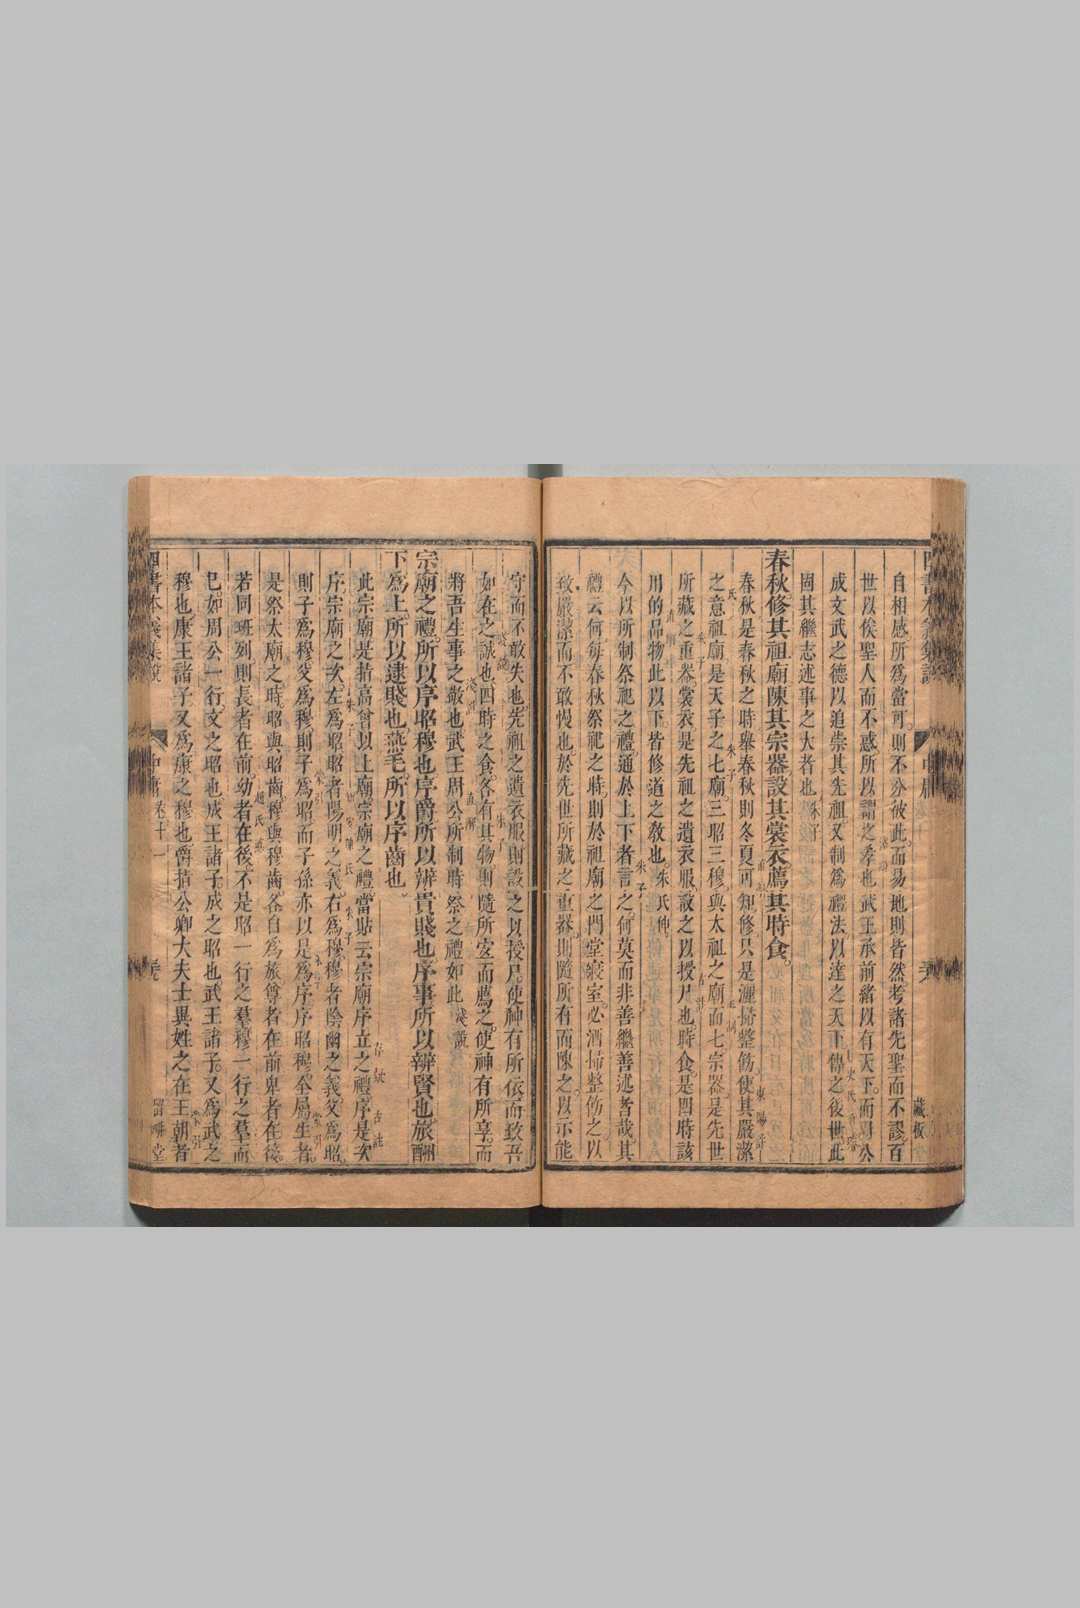 自相感所爲當可則不分彼此而易地則皆然考諸先聖而不謬百
世以俟聖人而不惑所以謂之孝也武王承前緒以有天下而周公
成文武之德以追崇其先祖又制爲禮法以達之天下傳之後世此
固其繼志述事之大者也朱子
春秋修其祖廟陳其宗器設其裳衣薦其時食
春秋是春秋之時舉春秋則冬夏可知修只是灑掃整飭使其嚴潔
之意祖廟是天子之七廟三昭三穆與太祖之廟而七宗器是先世
所藏之重器裳衣是先祖之遺衣服設之以授尸也時食是四時該
用的品物此以下皆修道之教也朱氏伸
今以所制祭祀之禮通於上下者言之何莫而非善繼善述者哉其
禮云何每春秋祭祀之時則於祖廟之門堂寢室必洒掃整飭之以
致嚴潔而不敢慢也於先世所藏之重器則隨所有而陳之以示能
守而不敢失也先祖之遺衣服則設之以授尸使神有所依而致吾
如在之誠也四時之食各有其物則隨所宜而薦之使神有所享而
將吾生事之敬也武王周公所制時祭之禮如此淺説
宗廟之禮所以序昭穆也序爵所以辨貴賤也序事所以辨賢也旅酬
下爲上所以逮賤也燕毛所以序齒也
此宗廟是指高曾以上廟宗廟之禮當貼云宗廟序立之禮序是次
序宗廟之次左爲昭昭者陽明之義右爲穆穆者陰幽之義父爲昭
則子爲穆父爲穆則子爲昭而子孫亦以是爲序序昭穆全屬生者
是祭太廟之時昭與昭齒穆與穆齒各自爲旅尊者在前卑者在後
若同班列則長者在前幼者在後不是昭一行之羣穆一行之羣而
已如周公一行文之昭也成王諸子成之昭也武王諸子又爲武之
穆也康王諸子又爲康之穆也爵指公卿大夫士異姓之在王朝者
四書本義集說
中庸
卷十一
堂